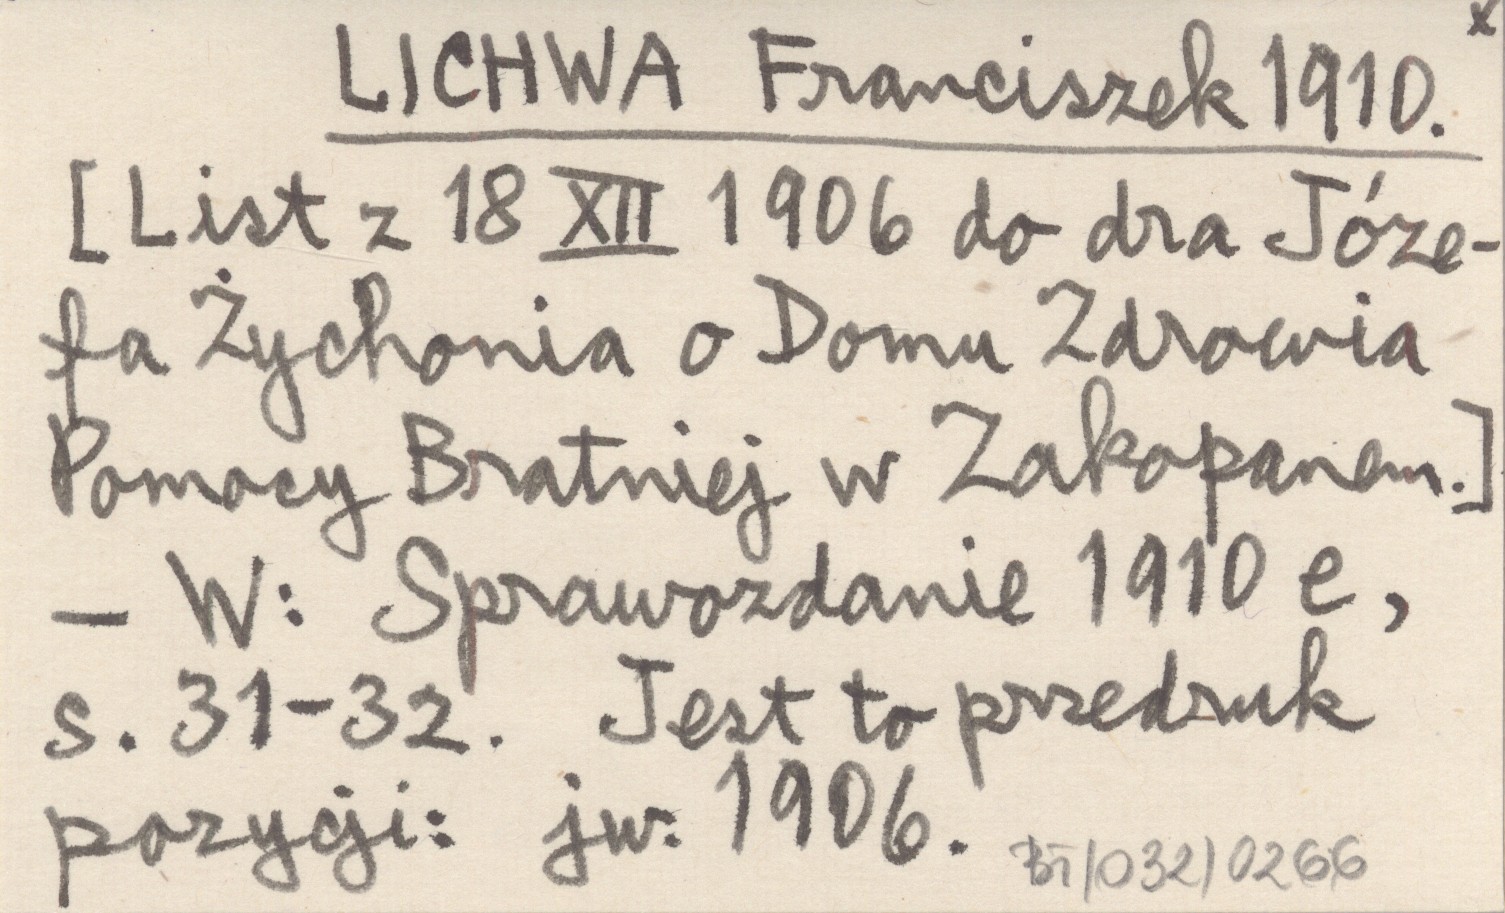 x
LICHWA Franciszek 1910.
[List z 18 XII 1906 do dra Józe-
fa Żychonia o Domu Zdrowia
Pomocy Bratniej w Zakopanem.]
– W: Sprawozdanie 1910 e,
s. 31-32. Jest to przedruk
pozycji: jw. 1906.
BT/032/0266